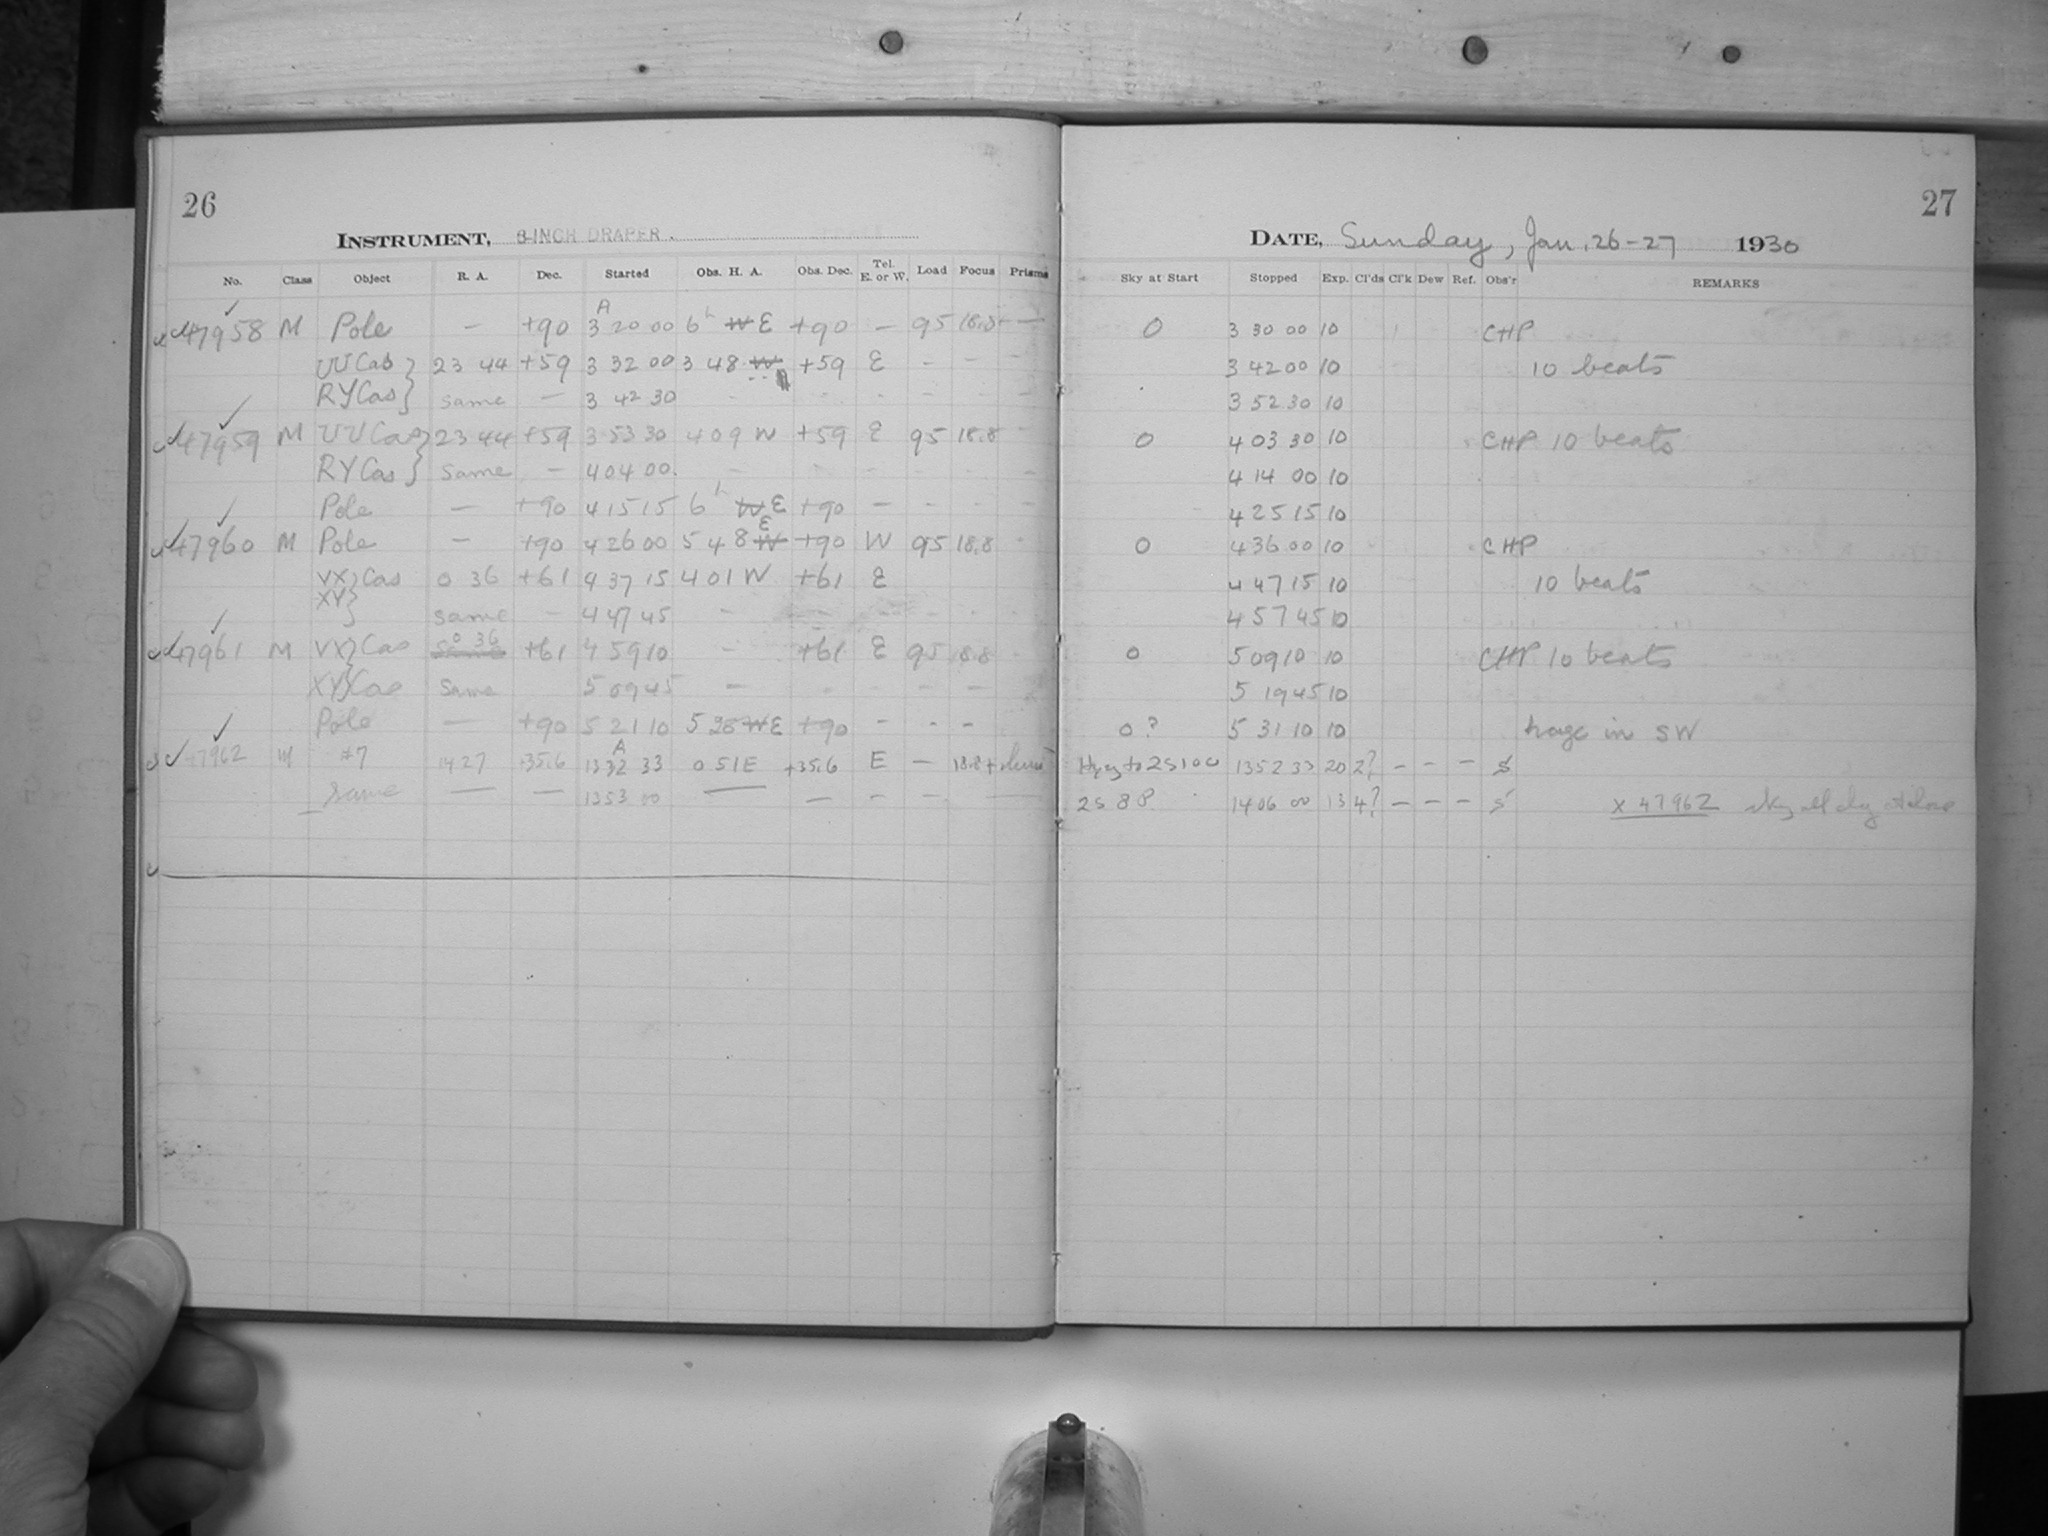 26
INSTRUMENT, 8-INCH DRAPER.
No. Class Object R. A. Dec. Started Obs. H. A. Obs. Dec. Tel. E. or W. Load Focus Prisms
47958 M Pole — +90 A 3 20 00 6h W E +90 — 95 18.8 —
UU Cas } 23 44 +59 3 32 00 3 48 W +59 E - - -
RY Cas } same — 3 42 30 - - - - - -
47959 M UU Cas } 23 44 +59 3 53 30 4 09 W +59 E 95 18.8 -
RY Cas } same — 4 04 00. - - - - -
Pole — +90 4 15 15 6h W E +90 — - - -
47960 M Pole — +90 4 26 00 5 48 W E +90 W 95 18.8 -
VX } Cas 0 36 +61 4 37 15 4 01 W +61 E
XY } same — 4 47 45 - - - - -
47961 M VX } Cas 0 36 +61 4 59 10 - +61 E 95 18.8
XY } Cas same 5 09 45 — - - - -
Pole — +90 5 21 10 5 28 W E +90 - - -
47962 M #7 14 27 +35.6 A 13 32 33 0 51 E +35.6 E — 18.8+
same — — 13 53 00 — — - - —
27
DATE, Sunday, Jan. 26-27 1930
Sky at Start Stopped Exp. Cl'ds Cl'k Dew Ref. Obs'r REMARKS
0 3 30 00 10 CHP
3 42 00 10 10 beats
3 52 30 10
0 4 03 30 10 CHP 10 beats
4 14 00 10
4 25 15 10
0 4 36 00 10 CHP
4 47 15 10 10 beats
4 57 45 10
0 5 09 10 10 CHP 10 beats
5 19 45 10
0? 5 31 10 10 haze in SW
to 2S100 13 52 33 20 2? — — — S
2S 8P 14 06 00 13 4? — — — S x 47962 sky all